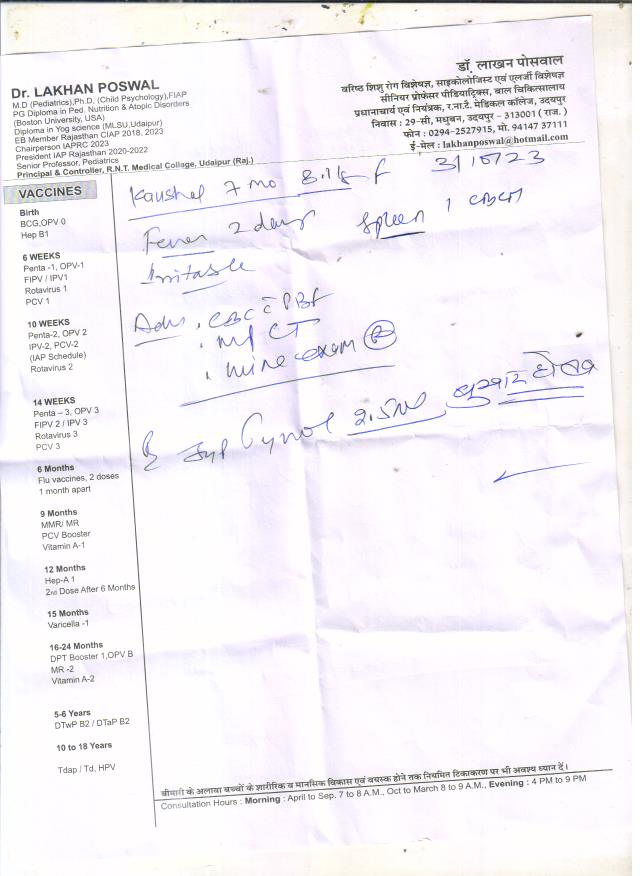 Dr. LAKHAN POSWAL
M.D (Pediatrics),Ph.D, (Child Psychology),FIAP
PG Diploma in Ped. Nutrition & Atopic Disorders
(Boston University, USA)
Diploma in Yog science (MLSU,Udaipur)
EB Member Rajasthan CIAP 2018, 2023
Chairperson IAPRC 2023
President IAP Rajasthan 2020-2022
Senior Professor, Pediatrics
Principal & Controller, R.N.T. Medical College, Udaipur (Raj.)
डॉ. लाखन पोसवाल
वरिष्ठ शिशु रोग विशेषज्ञ, साइकोलोजिस्ट एवं एलर्जी विशेषज्ञ
सीनियर प्रोफेसर पीडियाट्रिक्स, बाल चिकित्सालय
प्रधानाचार्य एवं नियंत्रक, र.ना.टै. मेडिकल कॉलेज, उदयपुर
निवास : 29-सी, मधुबन, उदयपुर - 313001 ( राज. )
फोन : 0294-2527915, मो. 94147 37111
ई-मेल : lakhanposwal@hotmail.com
3/10/23
7 mo 8.1kg f
Fever 2 days Spleen 1 cm
Irritable
Adv . CBC c̄ PBF
. MP CT
. Urine exam (R)
Syp 2.5ml बुखार हो तब
VACCINES
Birth
BCG,OPV 0
Hep B1
6 WEEKS
Penta -1, OPV-1
FIPV / IPV1
Rotavirus 1
PCV 1
10 WEEKS
Penta-2, OPV 2
IPV-2, PCV-2
(IAP Schedule)
Rotavirus 2
14 WEEKS
Penta – 3, OPV 3
FIPV 2 / IPV 3
Rotavirus 3
PCV 3
6 Months
Flu vaccines, 2 doses
1 month apart
9 Months
MMR/ MR
PCV Booster
Vitamin A-1
12 Months
Hep-A 1
2nd Dose After 6 Months
15 Months
Varicella -1
16-24 Months
DPT Booster 1,OPV B
MR -2
Vitamin A-2
5-6 Years
DTwP B2 / DTaP B2
10 to 18 Years
Tdap / Td, HPV
बीमारी के अलावा बच्चों के शारीरिक व मानसिक विकास एवं वयस्क होने तक नियमित टिकाकरण पर भी अवश्य ध्यान दें।
Consultation Hours : Morning : April to Sep. 7 to 8 A.M., Oct to March 8 to 9 A.M., Evening : 4 PM to 9 PM